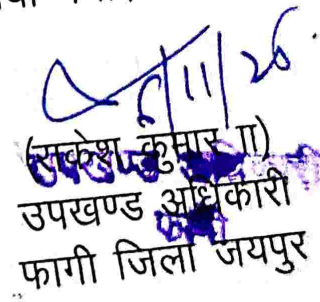 6/11/26
(राकेश कुमार II)
उपखण्ड अधिकारी
फागी जिला जयपुर